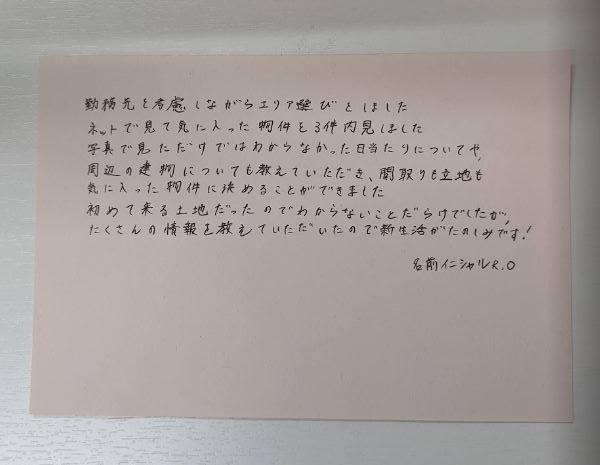 勤務先を考慮しながらエリア選びをしました
ネットで見て気に入った物件を3件内見しました
写真で見ただけではわからなかった日当たりについてや、
周辺の建物についても教えていただき、間取りも立地も
気に入った物件に決めることができました
初めて来る土地だったのでわからないことだらけでしたが、
たくさんの情報を教えていただいたので新生活がたのしみです!
名前イニシャルR.O